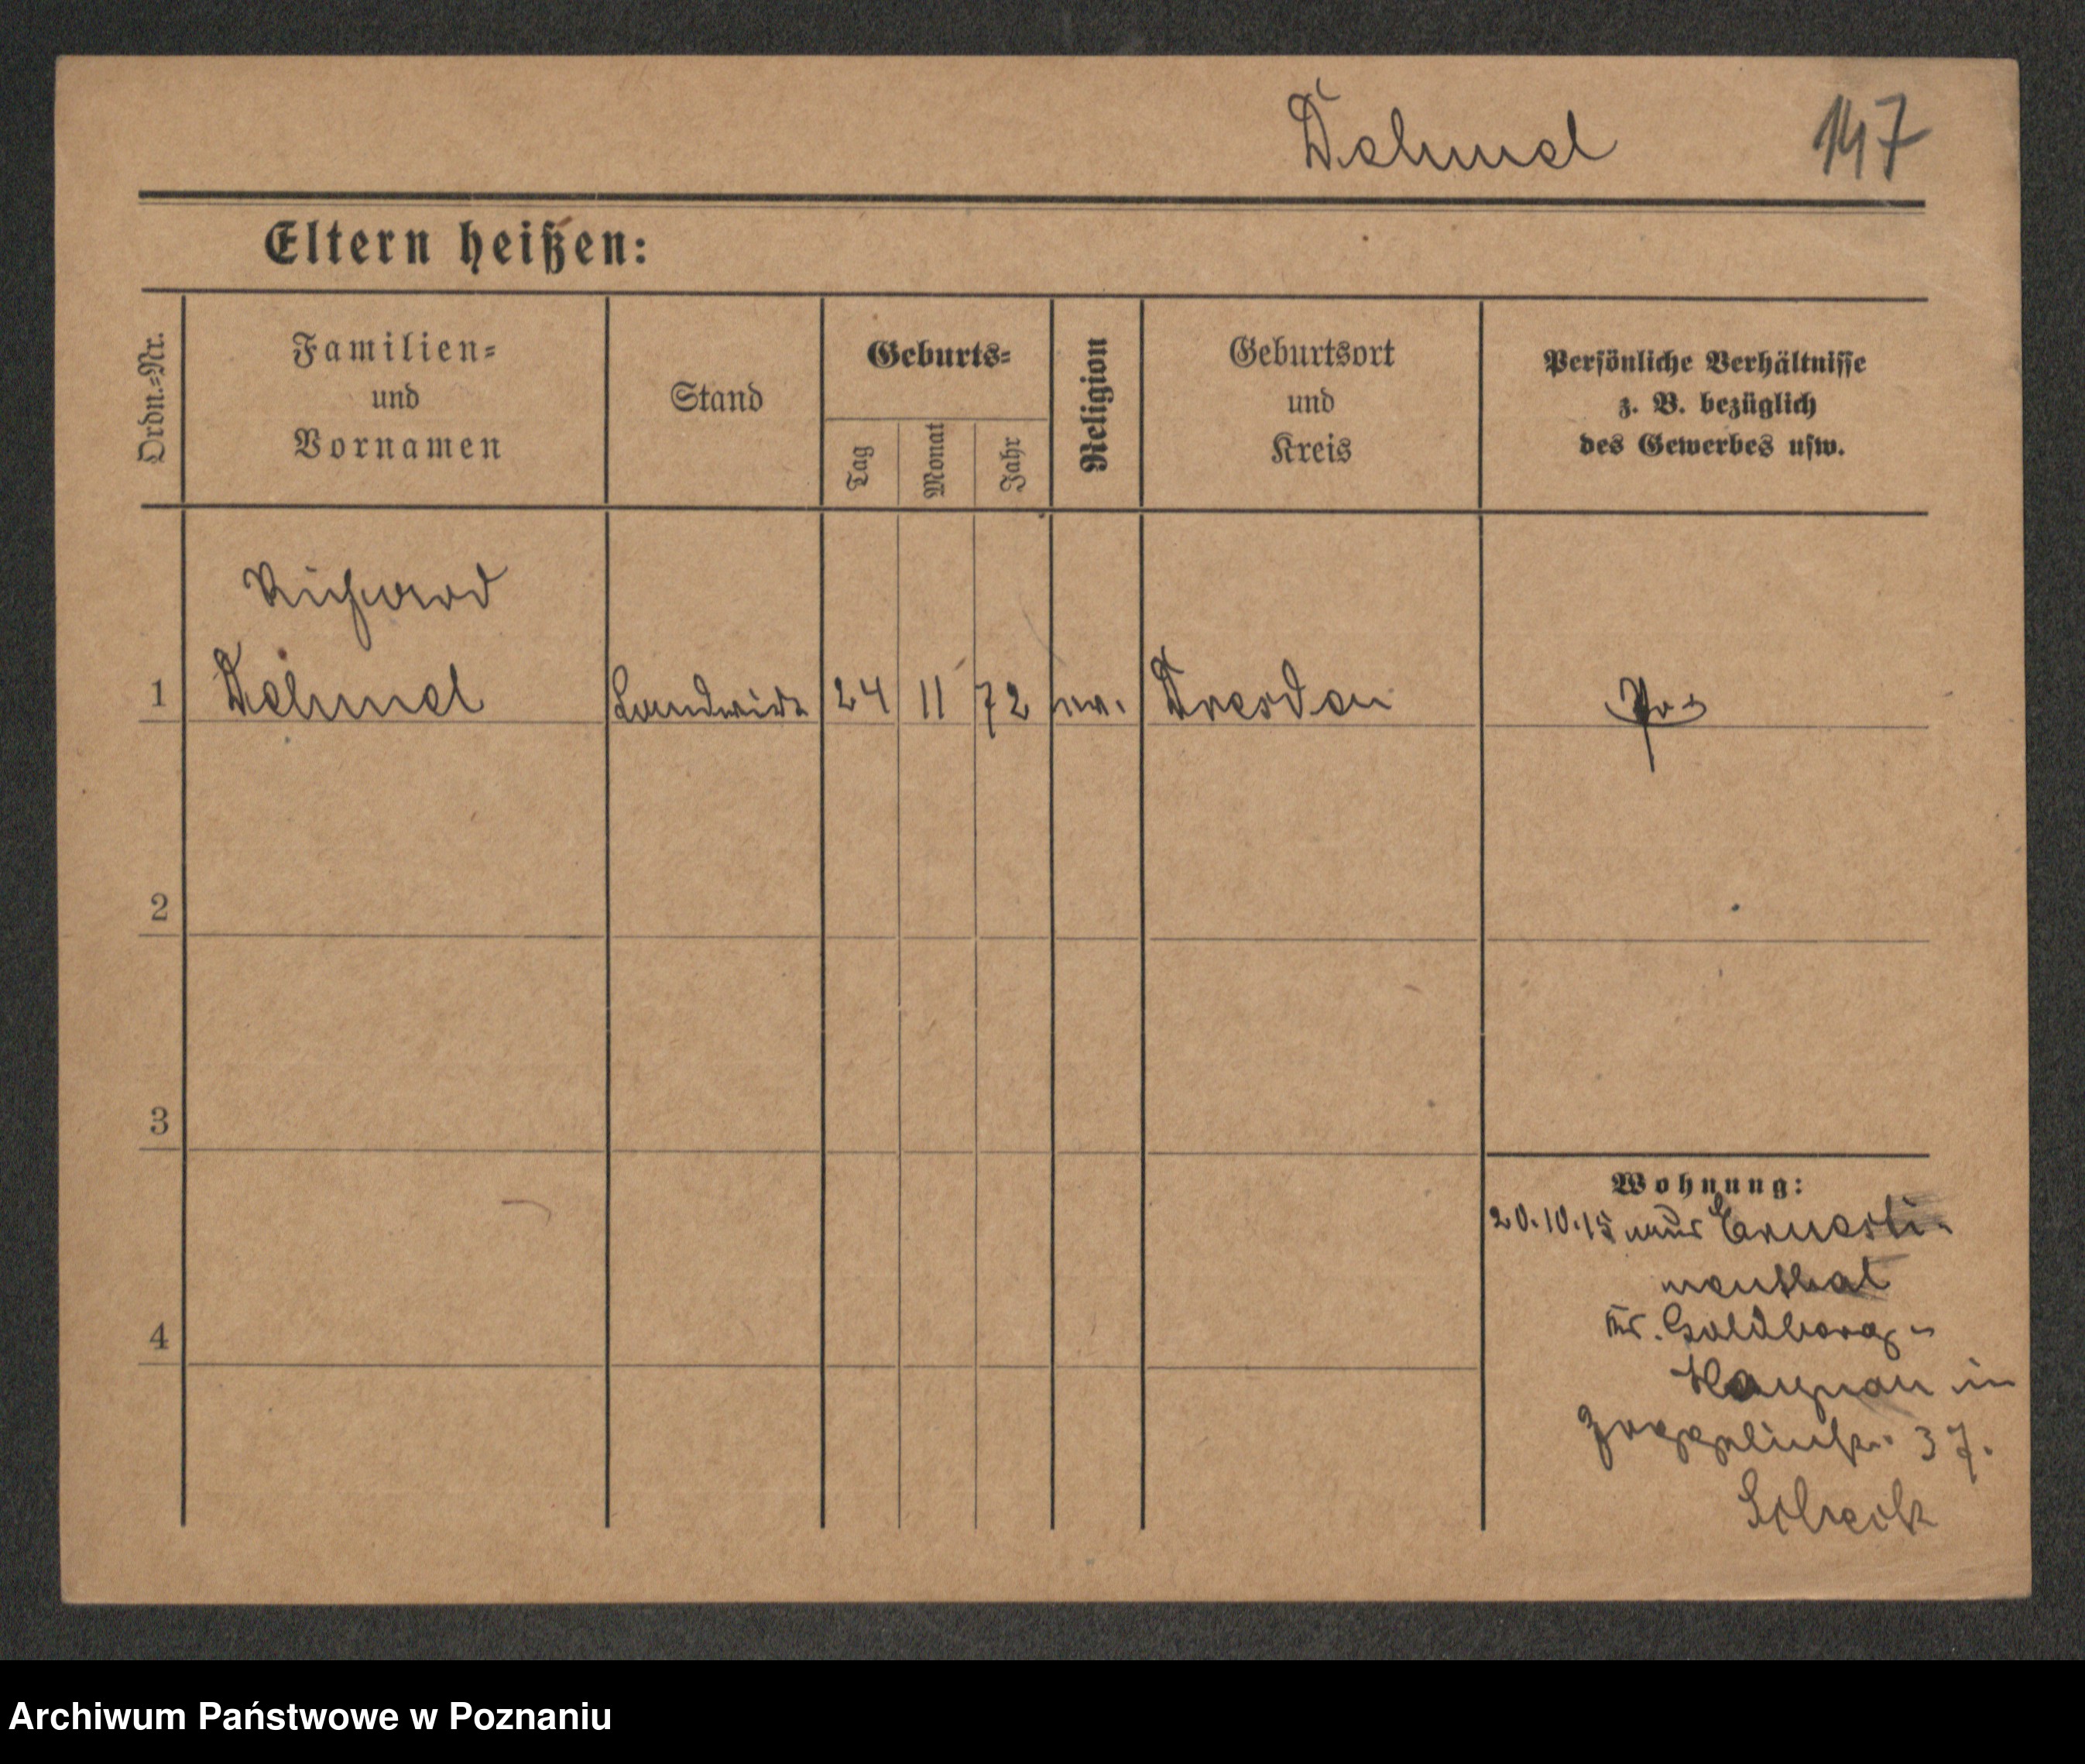 Dehmel 147
Eltern heißen:
Ordn.=Nr.
Familien=
und
Vornamen
Stand
Geburts=
Tag
Monat
Jahr
Religion
Geburtsort
und
Kreis
Persönliche Verhältnisse
z. B. bezüglich
des Gewerbes usw.
Richard
1 Dehmel Landwirt 24 11 72 ev. Dresden
2
3
4
Wohnung:
20.10.15 aus Ernesti-
nenthal
Kr. Goldberg-
Haynau in
37.
Archiwum Państwowe w Poznaniu